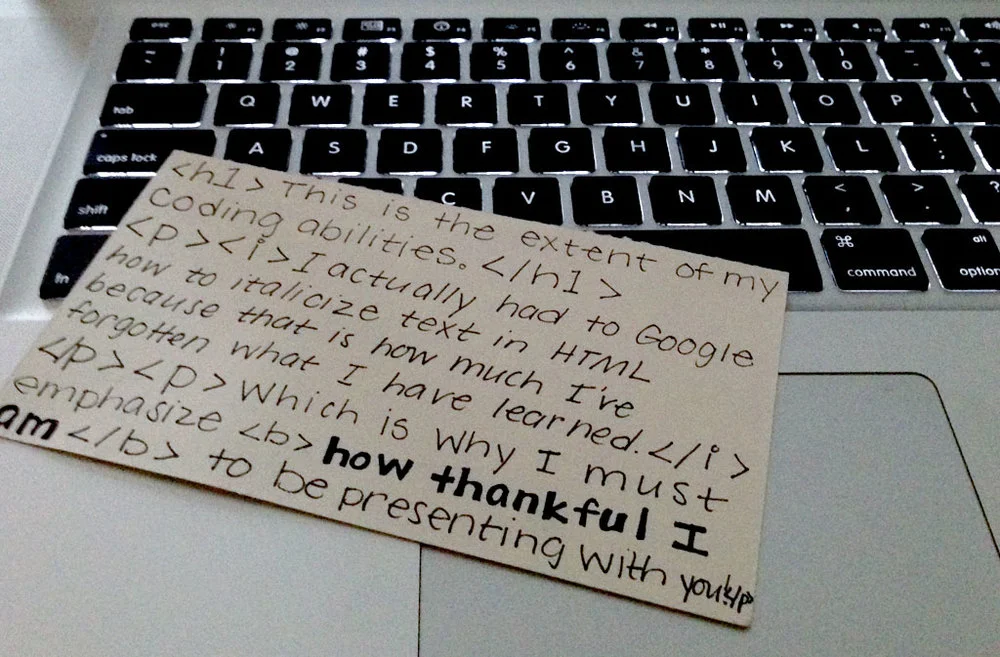 esc F1 F2 F3 F4 F5 F6 F7 F8 F9
~ ! @ # $ % ^ & * ( ) - +
` 1 2 3 4 5 6 7 8 9 0 - =
tab Q W E R T Y U I O P {
caps lock A S D F G H J K L : ;
shift C V B N M < , > . ?
fn ⌘ command alt option
<h1> This is the extent of my
coding abilities. </h1>
<p><i>I actually had to Google
how to italicize text in HTML
because that is how much I've
forgotten what I have learned.</i>
</p><p>Which is why I must
emphasize <b>how thankful I
am </b> to be presenting with you!</p>